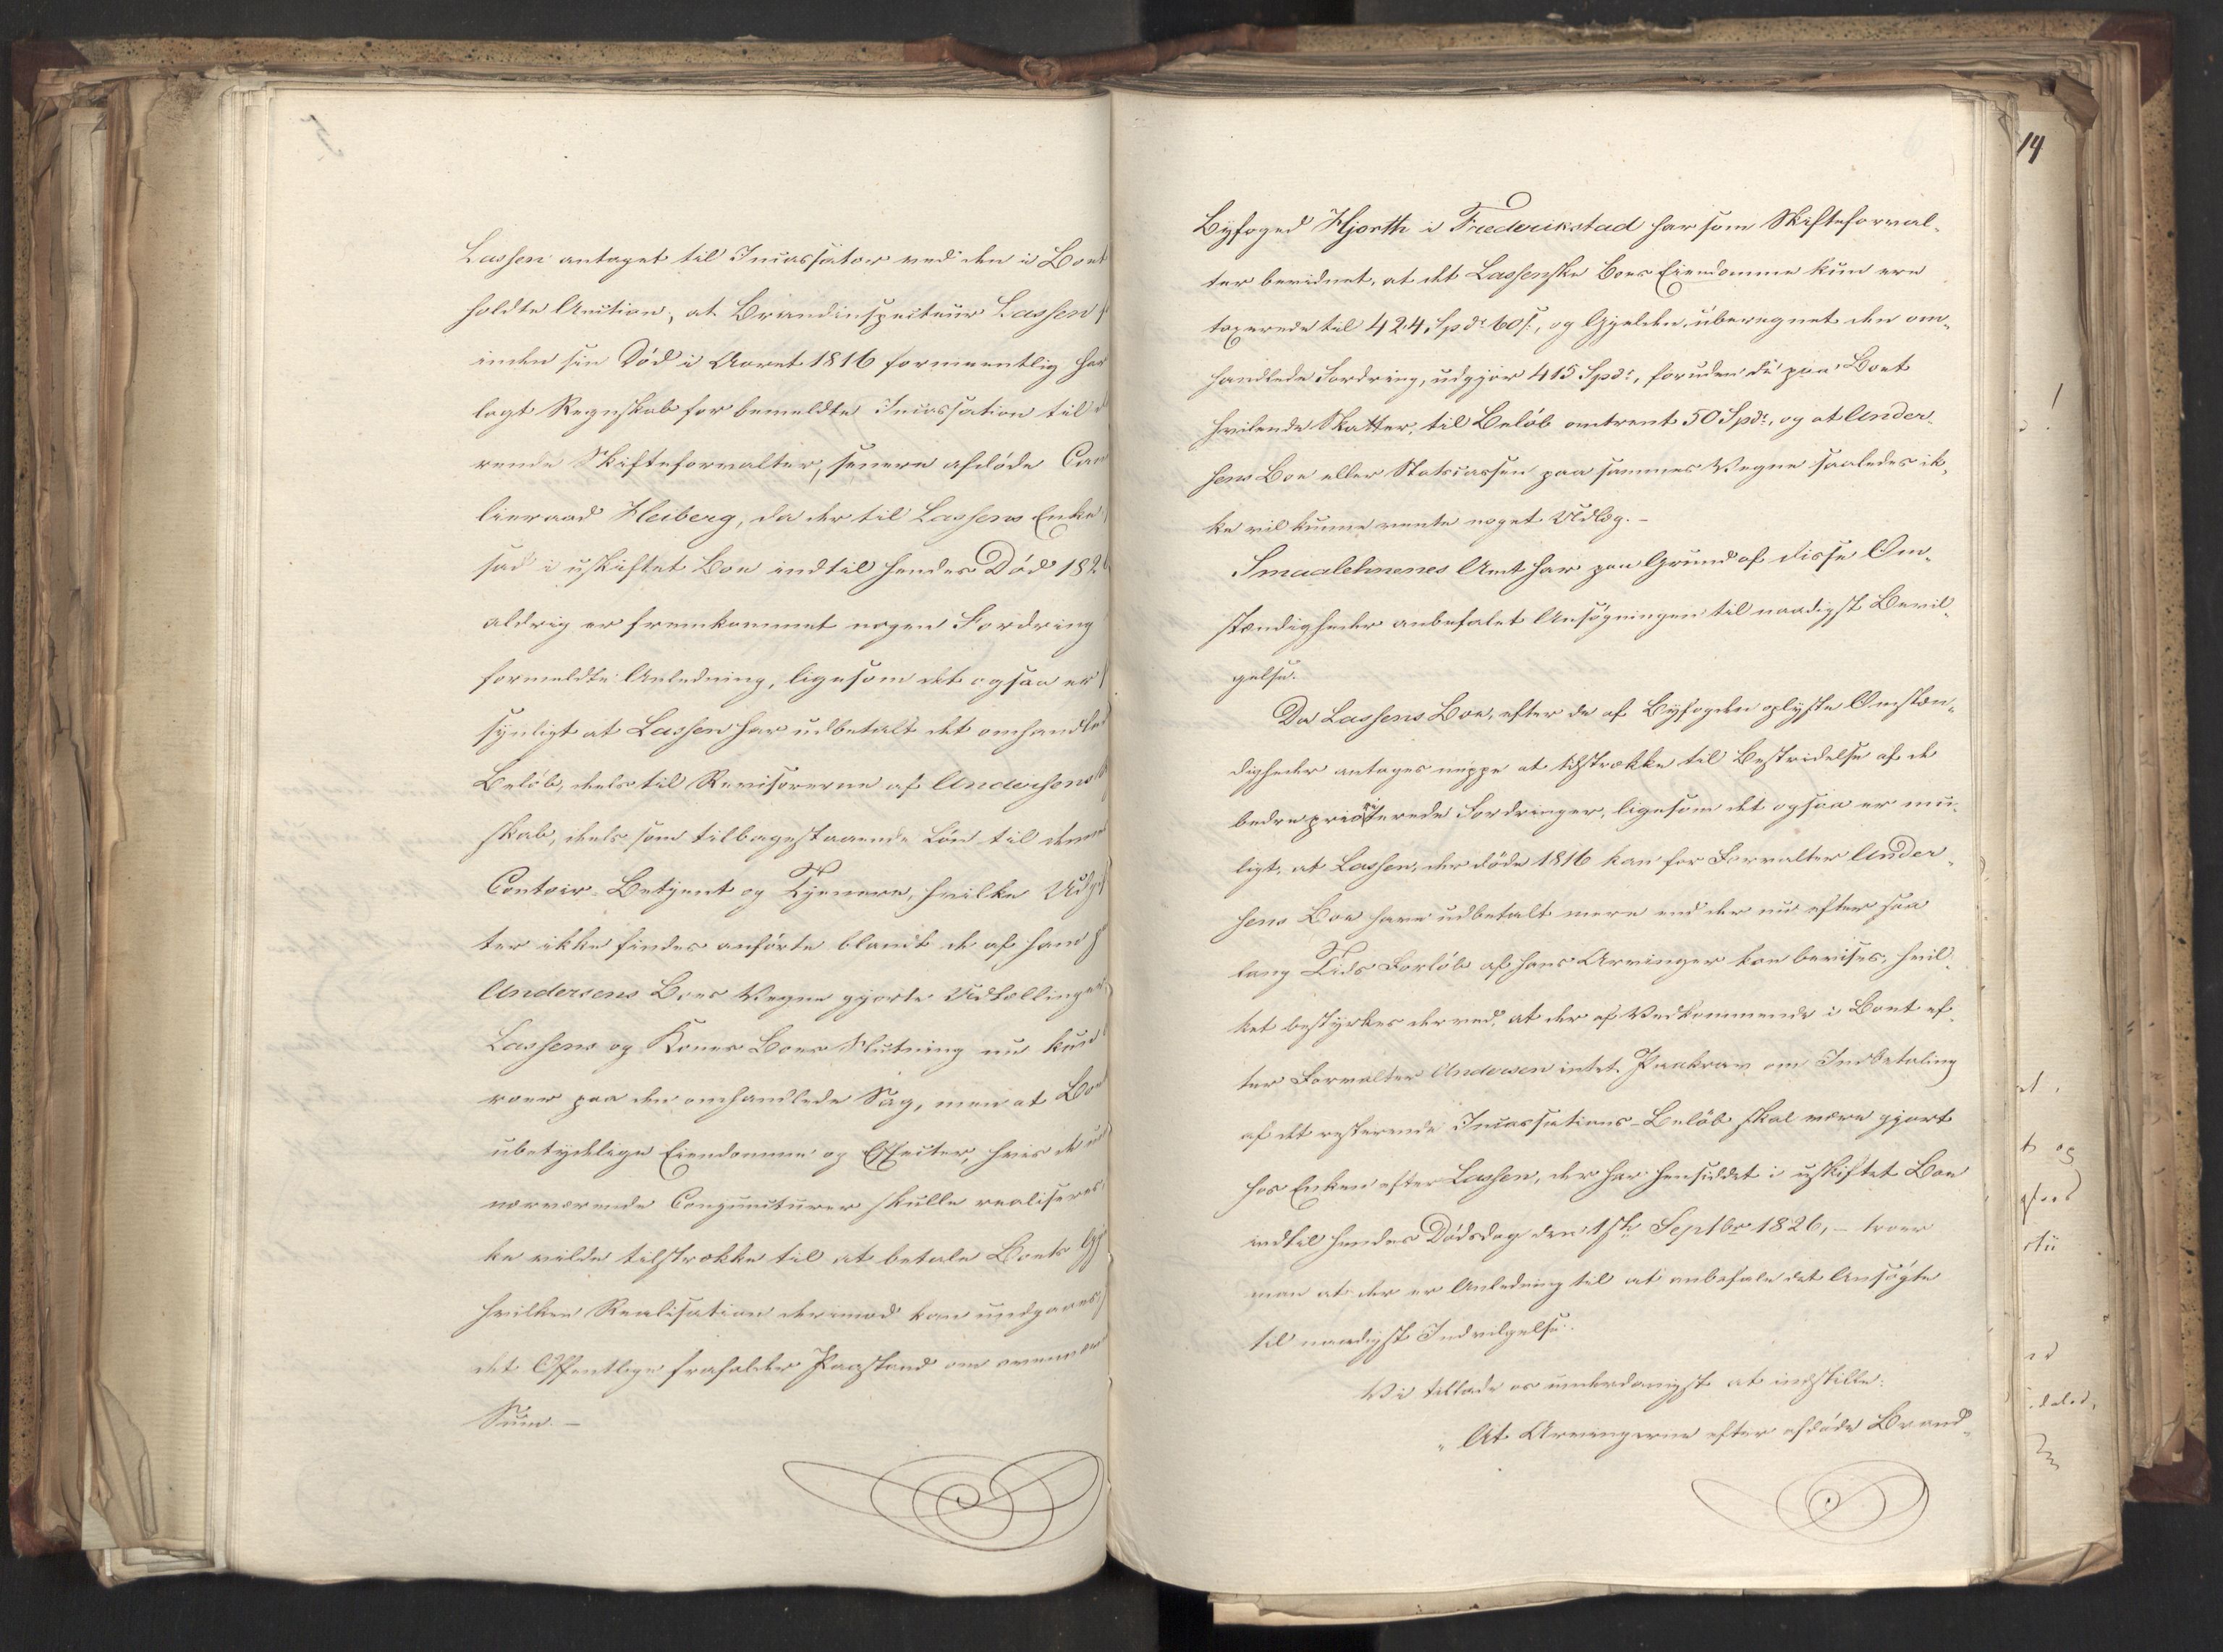 Lassen antaget til Incassator ved den i Boet
holdte Auction, at Brandinspecteur Lassen
inden sin Død i Aaret 1816 formeentlig har
lagt Regnskab for bemeldte Incassation til
rende Skifteforvalter, senere afdøde Can
lieraad Heiberg, da der til Lassens Enke
sad i uskiftet Boe indtil hendes Død 182
aldrig er fremkommet nogen Fordring
formeldte Anledning, ligesom det ogsaa er
synligt at Lassen har udbetalt det omhandle
Beløb, deels til Revisorerne af Andersens
skab, deels som tilbagestaaende Løn til denne
Contoir-Betjent og Tjenere, hvilke Udgif
ter ikke findes anførte blandt de af ham
Andersens Boes Vegne gjorte Udtællinger
Lassens og Kones Boes Slutning nu kun
roer paa den omhandlede Sag, men at Bo
ubetydelige Eiendomme og Effecter, hvis de
nærværende Conjuncturer skulle realiseres
ke vilde tilstrække til at betale Boets Gj
hvilken Realisation derimod kan undgaaes
det Offentlige frafalder Paastand om ovenme
Sum. –
14
Byfoged Hjorth i Frederikstad har som Skifteforval-
ter bevidnet, at det Lassenske Boes Eiendomme kun ere
taxerede til 424 Spdr 60 s, og Gjelden, uberegnet den om-
handlede Fordring, udgjør 415 Spdr, foruden de paa Boet
hvilende Skatter, til Beløb omtrent 50 Spdr, og at Ander-
sens Boe eller Statscassen paa sammes Vegne saaledes ik-
ke vil kunne vente noget Udlæg. –
Smaalehnenes Amt har paa Grund af disse Om-
stændigheder anbefalet Ansøgningen til naadigst Bevil-
gelse.
Da Lassens Boe, efter de af Byfogden oplyste Omstæn-
digheder antages neppe at tilstrække til Bestridelse af de
bedre prioriterede Fordringer, ligesom det ogsaa er mu-
ligt, at Lassen, der døde 1816 kan for Forvalter Ander-
sens Boe have udbetalt mere end der nu efter saa
lang Tids Forløb af hans Arvinger kan bevises, hvil-
ket bestyrkes derved, at der af Vedkommende i Boet ef-
ter Forvalter Andersen intet Paakrav om Indbetaling
af det resterende Incassations-Beløb skal være gjort
hos Enken efter Lassen, der har hensiddet i uskiftet Boe
indtil hendes Dødsdag den 1ste Septbr 1826, – troer
man at der er Anledning til at anbefale det Ansøgte
til naadigst Indvilgelse.
Vi tillade os underdanigst at indstille:
"At Arvingerne efter afdøde Brand-